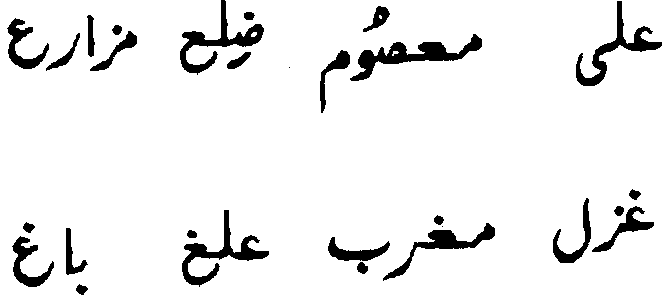 علی معصُوم ضلع مزارع
غزل مغرب علغ باغ